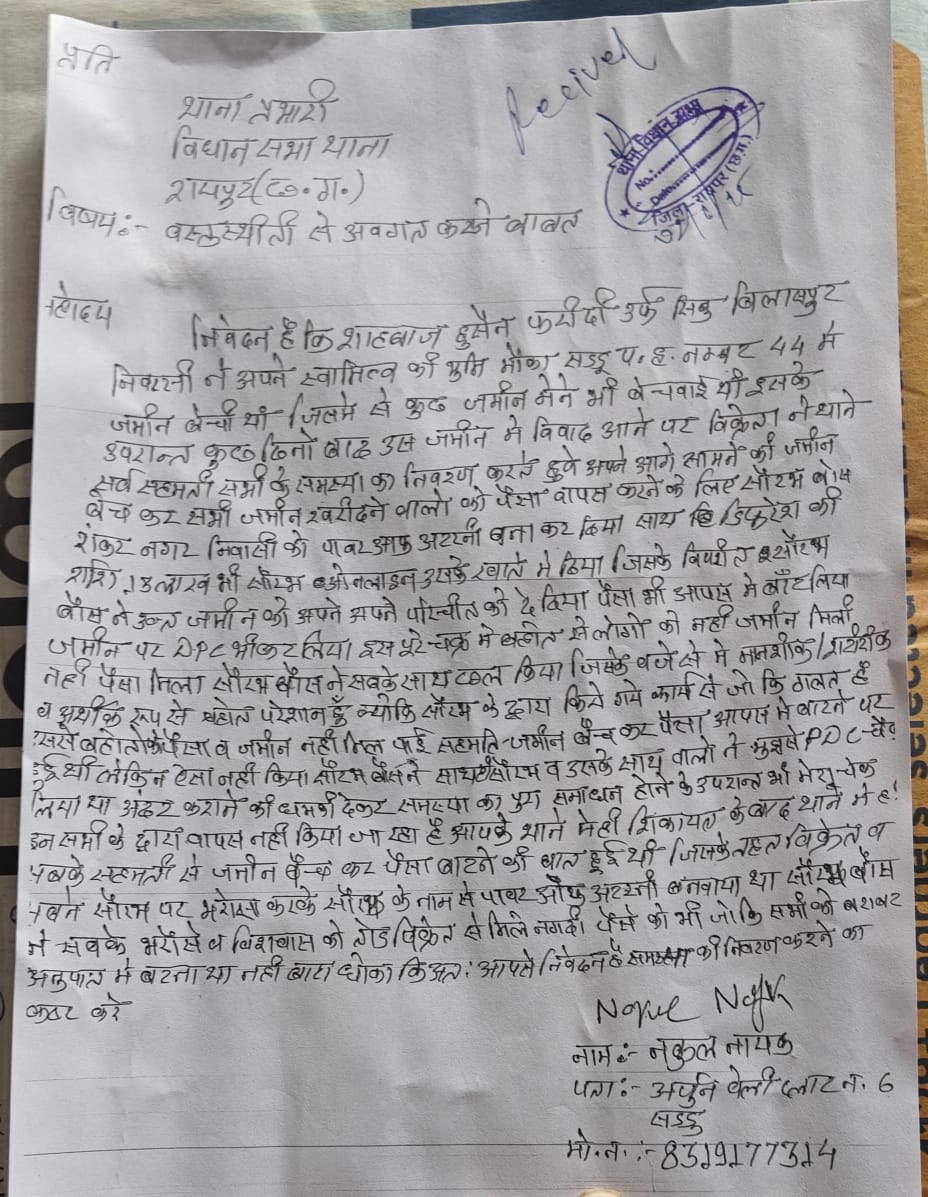 प्रति
थाना प्रभारी
विधान सभा थाना
रायपुर (छ.ग.)
Recived
थाना विधान सभा
No.
Date
जिला-रायपुर (छ.ग.)
विषय:- वस्तुस्थीती से अवगत करने बाबत
महोदय
निवेदन है कि शाहबाज हुसैन फरीदी उर्फ सिबु बिलासपुर
निवासी ने अपने स्वामित्व की भुमि मौका सड्डू प.ह. नम्बर 44 मे
जमीन बेची थी जिसमे से कुछ जमीन मेने भी बेचवाई थी इसके
उपरान्त कुछ दिनो बाद उस जमीन मे विवाद आने पर विक्रेता ने थाने
सर्व सहमती सभी के समस्या का निवारण करते हुवे अपने आगे सामने की जमीन
बेच कर सभी जमीन खरीदने वालो को पैसा वापस करने के लिए सौरभ बोस
शंकर नगर निवासी को पावर आफ अटरनी बना कर दिया साथ डिफरेश की
राशि लाख भी सौरभ ओनलाइन उसके खाते मे दिया जिसके विपरीत सौरभ
बौस ने उक्त जमीन को अपने अपने परिचीत को दे दिया पैसा भी आपस मे बाँट लिया
जमीन पर DPC भी कर लिया इस पूरे चक्र मे बहोत से लोगो को नही जमीन मिली
नही पैसा मिला सौरभ बौस ने सबके साथ छल किया जिसके वजे से मे मानशीक/शारीरिक
व आर्थीक रूप से बहोत परेशान हूँ क्योकि सौरभ के द्वारा किये गये कार्य से जो कि गलत है
इससे बहोतो को पैसा व जमीन नही मिल पाई सहमति जमीन बैच कर पैसा आपस मे बाटने पर
हुई थी लेकिन ऐसा नही किया सौरभ बौस ने साथ ही सौरभ व उसके साथ वालो ने मुझसे PDC चैक
लिया था अंदर कराने की धमकी देकर समस्या का पुरा समाधन होने के उपरान्त भी मेरा चेक
इन सभी के द्वारा वापस नही किया जा रहा है आपके थाने मे ही शिकायत के बाद थाने मे ही
सबके सहमती से जमीन बैच कर पैसा बाटने की बात हुई थी जिसके तहत विक्रेता व
सबने सौरभ पर भरोसा करके सौरभ के नाम से पावर ऑफ अटरनी बनवाया था सौरभ बौस
ने सबके भरोसे व विशवास को तोड विक्रेता से मिले नगदी पैसे को भी जो कि सभी को बराबर
अनुपात मे बटना था नही बाटा धोका कि अत: आपसे निवेदन है समस्या की निवारण करने का
कष्ट करे
नाम:- नकुल नायक
पता:- अर्जुन वेली प्लाट न. 6
सड्डू
मो.न. :- 8319177314